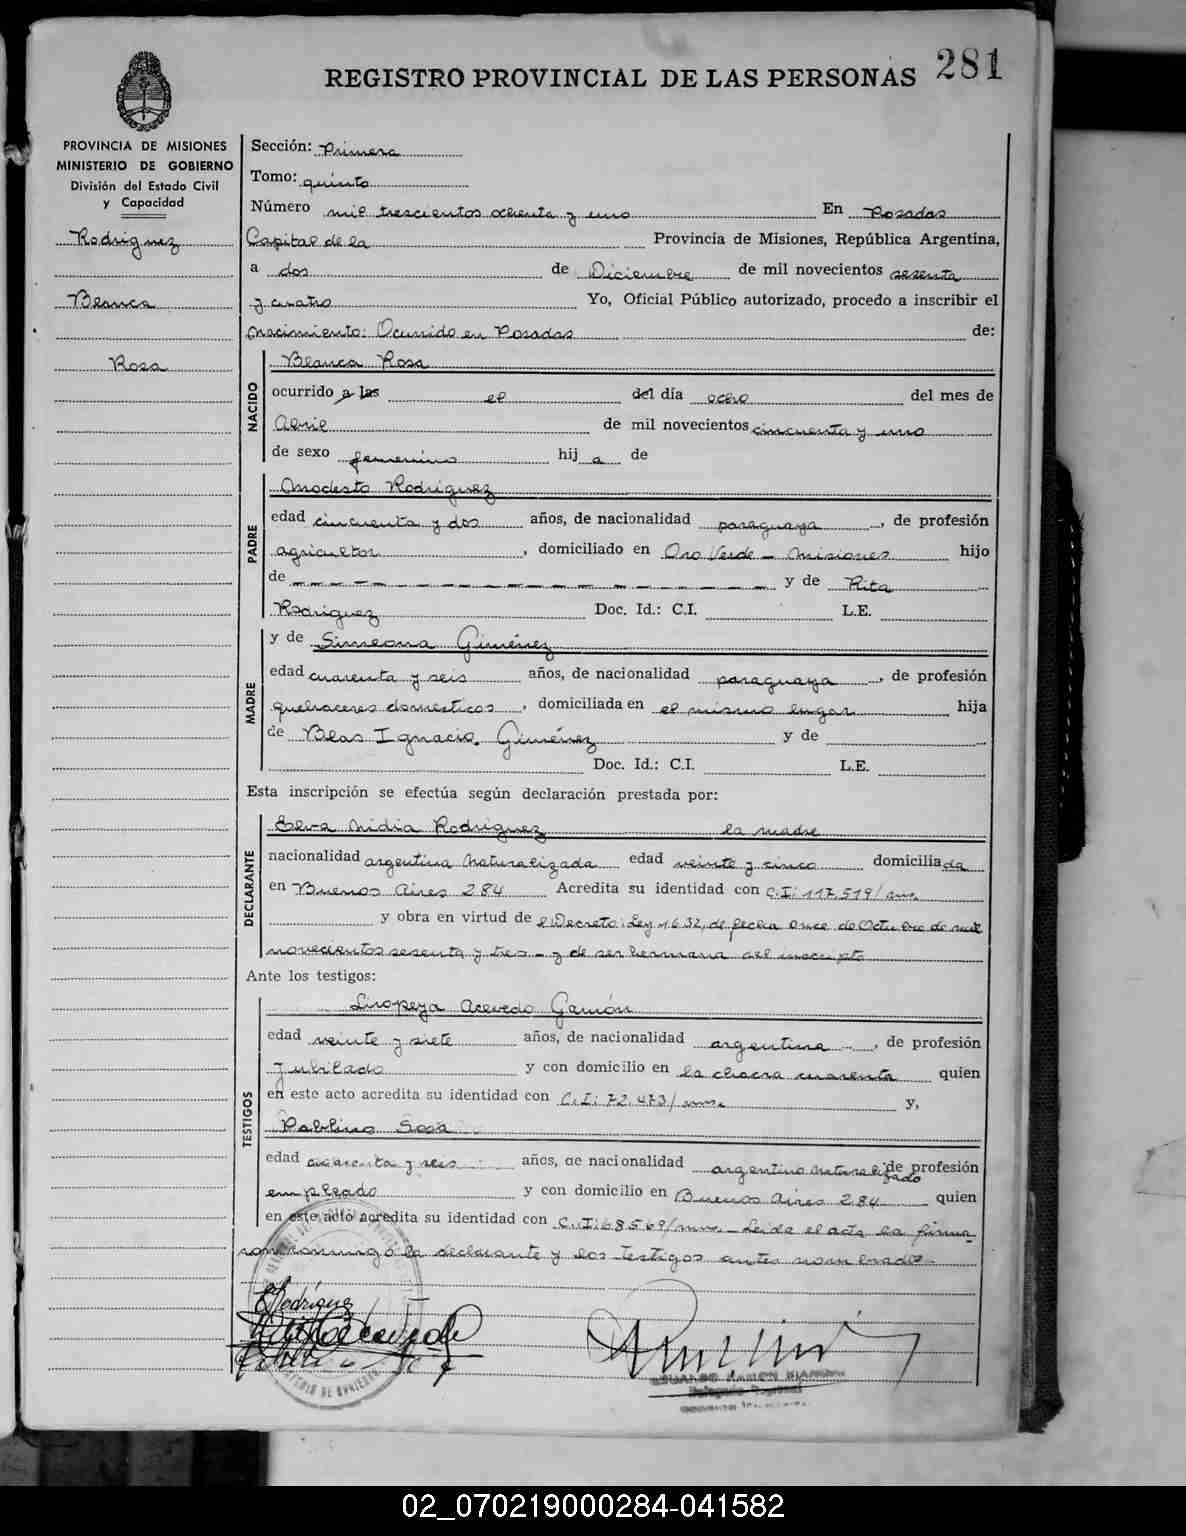 281
REGISTRO PROVINCIAL DE LAS PERSONAS
PROVINCIA DE MISIONES
MINISTERIO DE GOBIERNO
División del Estado Civil
y Capacidad
Rodriguez
Blanca
Rosa
Sección: Primera
Tomo: quinto
Número mil trescientos ochenta y uno En Posadas
Capital de la Provincia de Misiones, República Argentina,
a dos de Diciembre de mil novecientos sesenta
y cuatro Yo, Oficial Público autorizado, procedo a inscribir el
nacimiento: Ocurrido en Posadas de:
NACIDO
Blanca Rosa
ocurrido a las el del día ocho del mes de
Abril de mil novecientos cincuenta y uno
de sexo femenino hij a de
PADRE
Modesto Rodriguez
edad cincuenta y dos años, de nacionalidad paraguaya, de profesión
agricultor, domiciliado en Oro Verde - Misiones hijo
de y de Rita
Rodriguez Doc. Id.: C.I. L.E.
MADRE
y de Simeona Giménez
edad cuarenta y seis años, de nacionalidad paraguaya, de profesión
quehaceres domesticos, domiciliada en el mismo lugar hija
de Blas Ignacio Giménez y de
Doc. Id.: C.I. L.E.
Esta inscripción se efectúa según declaración prestada por:
DECLARANTE
Elva Nidia Rodriguez la madre
nacionalidad argentina naturalizada edad veinte y cinco domiciliada
en Buenos Aires 284 Acredita su identidad con C.I: 117.519/mnes.
y obra en virtud de el Decreto Ley 1632, de fecha once de Octubre de mil
novecientos sesenta y tres - y de ser hermana del inscripto
Ante los testigos:
TESTIGOS
Liropeya Acevedo Gamón
edad veinte y siete años, de nacionalidad argentina, de profesión
Jubilado y con domicilio en la chacra cuarenta quien
en este acto acredita su identidad con C.I: 72.473/mnes. y,
Pablino Sosa
edad cuarenta y seis años, de nacionalidad argentino naturalizado de profesión
empleado y con domicilio en Buenos Aires 284 quien
en este acto acredita su identidad con C.I: 68569/mnes. - Leida el acta la firma
con la declarante y los testigos antes nombrados -
E Rodríguez
02_070219000284-041582